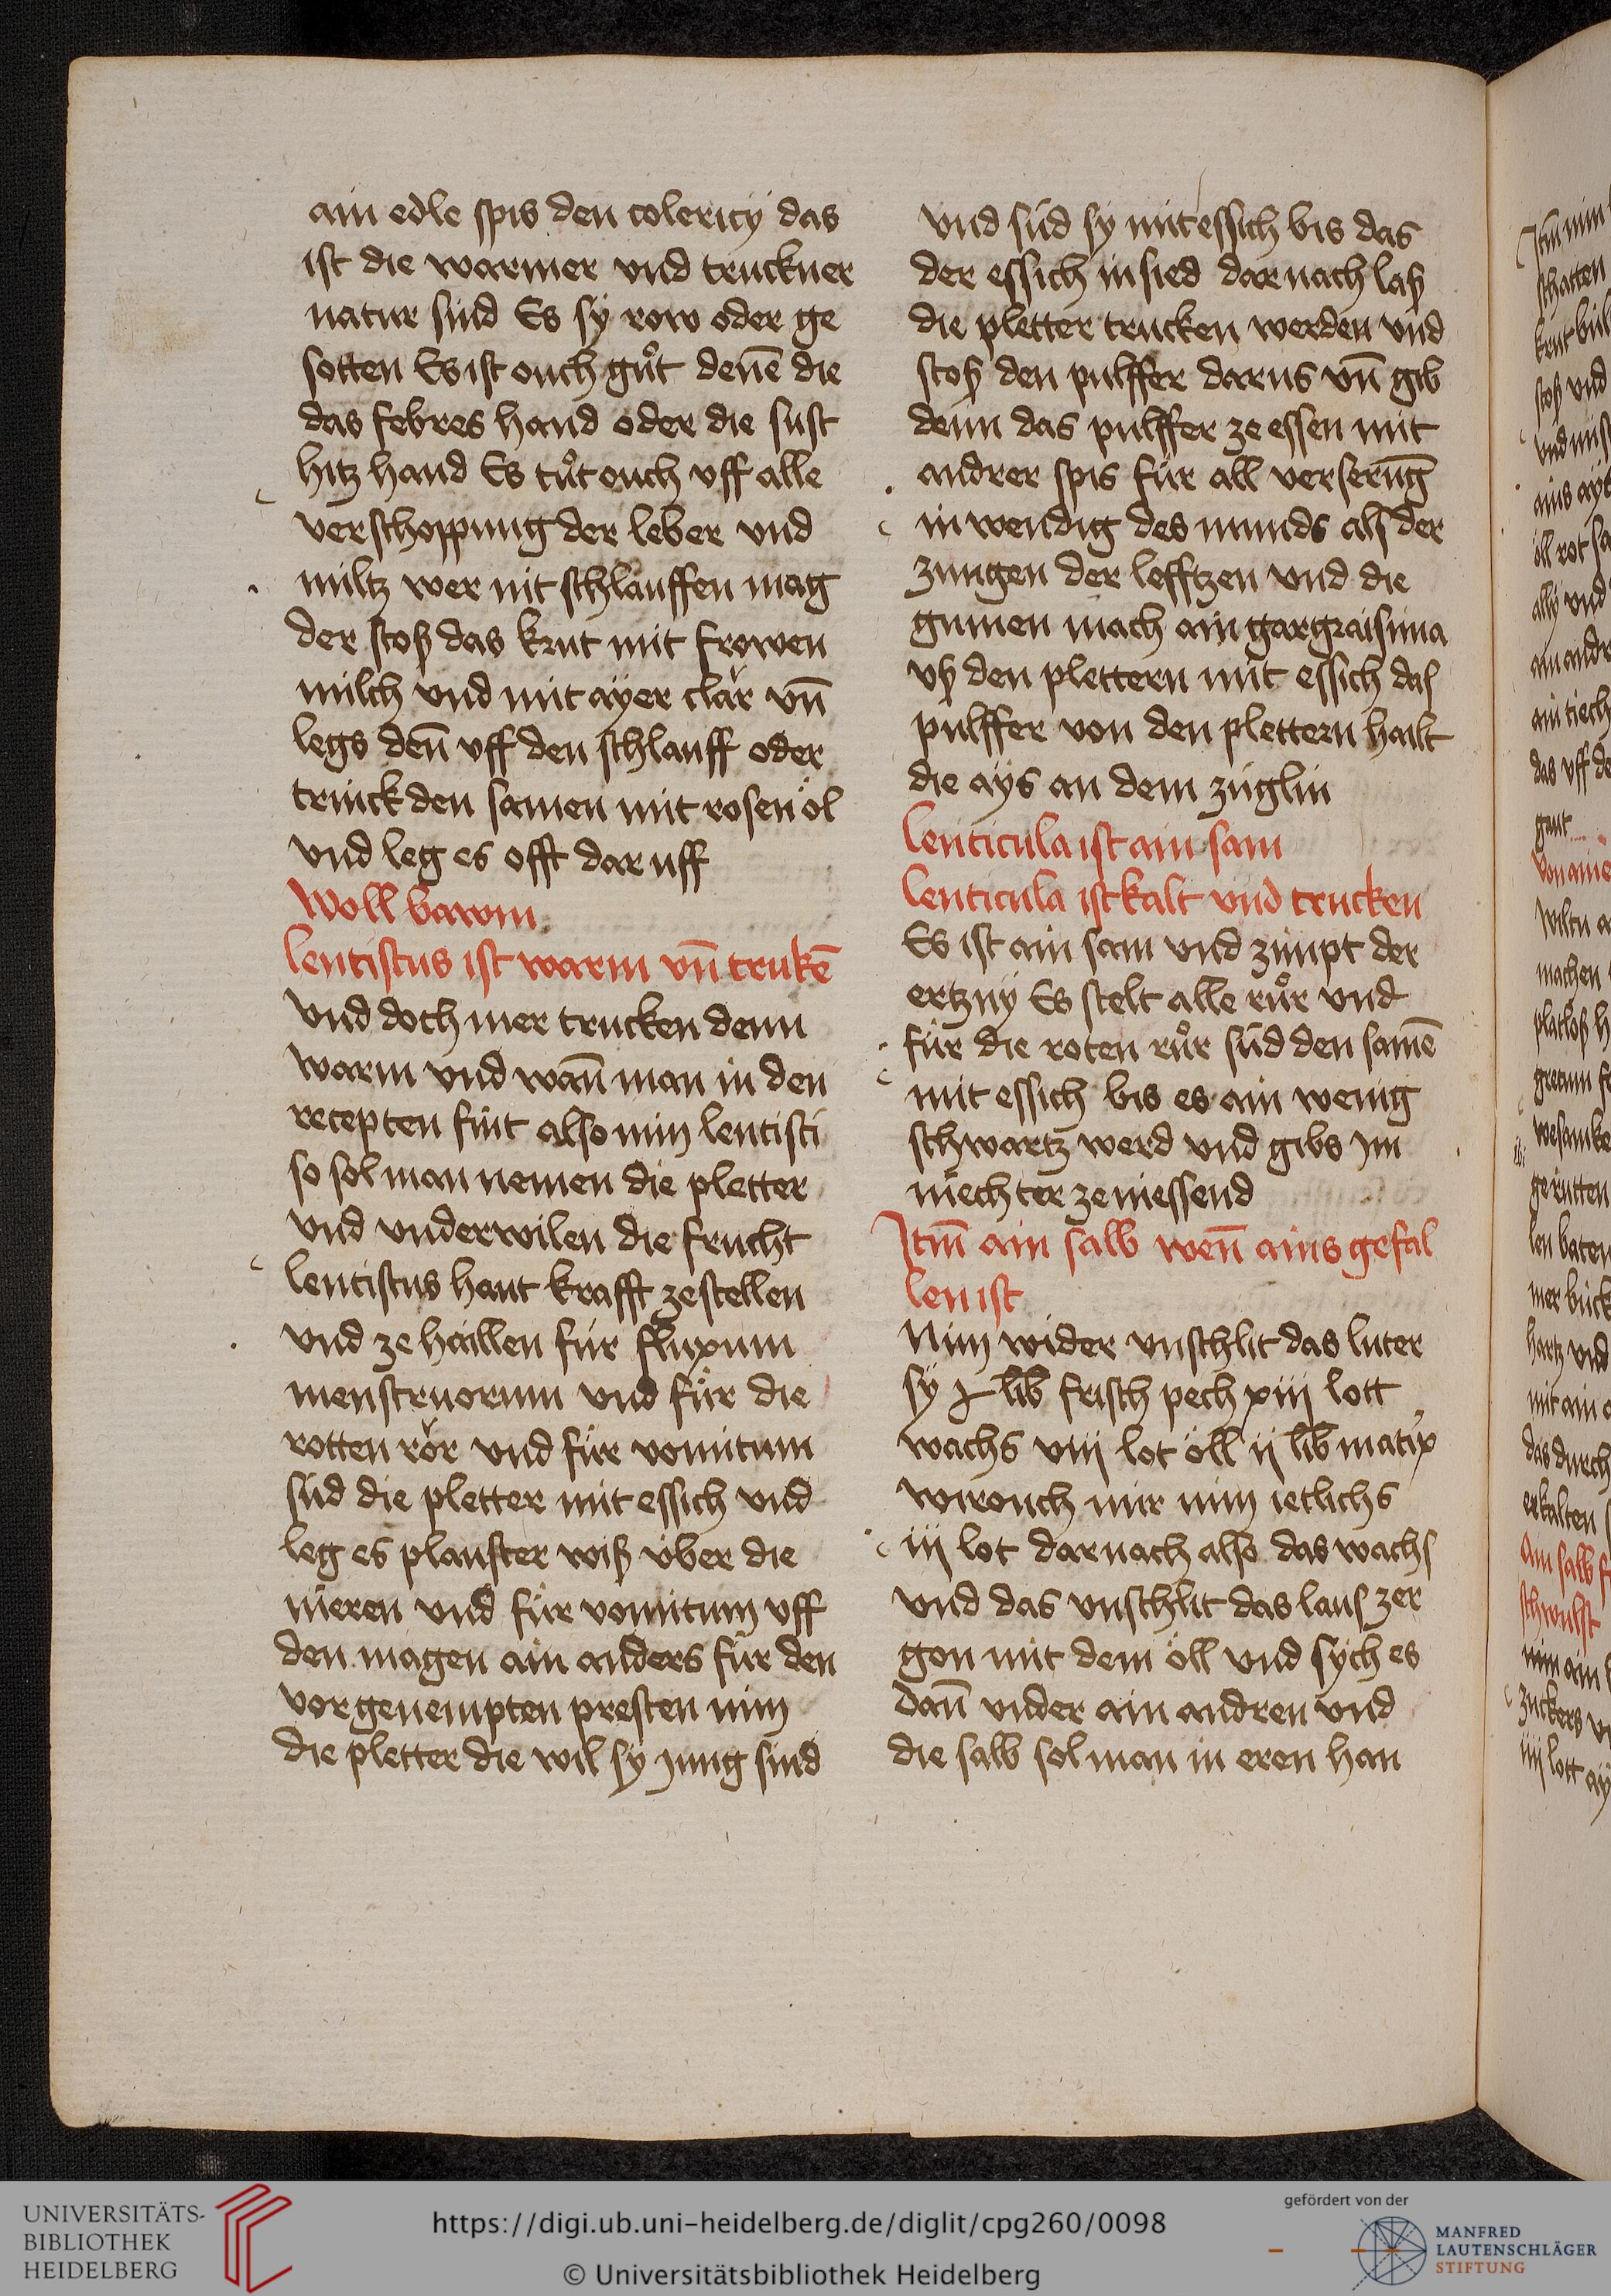 ain edle spis den colericÿ das
ist die warmer vnd truckner
natur sind Es sÿ row oder ge
sotten Es ist ouch guͦt denē die
das febres hand oder die sust
hitz hand Es tuͦt ouch vff alle
verschoppung der leber vnd
miltz wer nit schlauffen mag
der stoß das krut mit frowen
milch vnd mit aÿer clär vn̄
legs den̄ vff den schlauff oder
trinck den samen mit rosen öl
vnd leg es offt dar uff
Woll bawm
Lentistus ist warm vn̄ trukē
vnd doch mer trucken denn
warm vnd wan̄ man in den
recepten fint also nim lentisci
so sol man nemen die pletter
vnd vnderwilen die frucht
lentistus haut krafft ze stellen
vnd ze haillen für fluxum
menstruorum vnd für die
rotten rör vnd für vomitum
süd die pletter mit essich vnd
leg es plauster wiß über die
nieren vnd für vomitum vff
den magen ain anders für den
vor genempten presten nim
die pletter die wil sÿ jung sind
vnd süd sÿ mit essich bis das
der essich in sied dar nach laß
die pletter trucken werden vnd
stoß den pulffer darus vn̄ gib
denn das pulffer ze essen mit
andrer spis für all verserūg
in wendig des munds als der
zungen der lefftzen vnd die
gumen mach ain gargraisima
vß den plettern mit essich das
pulffer von den plettern hailt
die aÿs an dem züglin
Lenticula ist ain sam
Lenticula ist kalt vnd trucken
Es ist ain sam vnd zimpt der
ertznÿ Es stelt alle ruͦr vnd
für die roten ruͦr süd den samē
mit essich bis es ain wenig
schwartz werd vnd gibs im
niechter ze niessend
Itm̄ ain salb wen̄ ains gefal
len ist
Nim wider vnschlit das luter
sÿ j lib frisch pech xiij lott
wachs viij lot öll ij lib matix
wirouch mir nim ietlichs
iij lot dar nach also das wachs
vnd das vnschlit das laus zer
gon mit dem öll vnd sÿch es
dan̄ vnder ain andren vnd
die salb sol man in eren han
UNIVERSITÄTS-
BIBLIOTHEK
HEIDELBERG
https://digi.ub.uni-heidelberg.de/diglit/cpg260/0098
© Universitätsbibliothek Heidelberg
gefördert von der
MANFRED
LAUTENSCHLÄGER
STIFTUNG